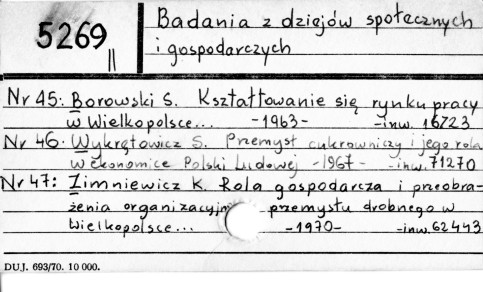 5269 II
Badania z dziejów społecznych
i gospodarczych
Nr 45: Borowski S. Kształtowanie się rynku pracy
w Wielkopolsce... -1963- -inw. 16723
Nr 46. Wykrętowicz S. Przemysł cukrowniczy i jego rola
w ekonomice Polski Ludowej -1967- -inw. 71270
Nr 47: Zimniewicz K. Rola gospodarcza i przeobra-
żenia organizacyjne przemysłu drobnego w
Wielkopolsce... -1970- -inw. 62443
DUJ. 693/70. 10 000.